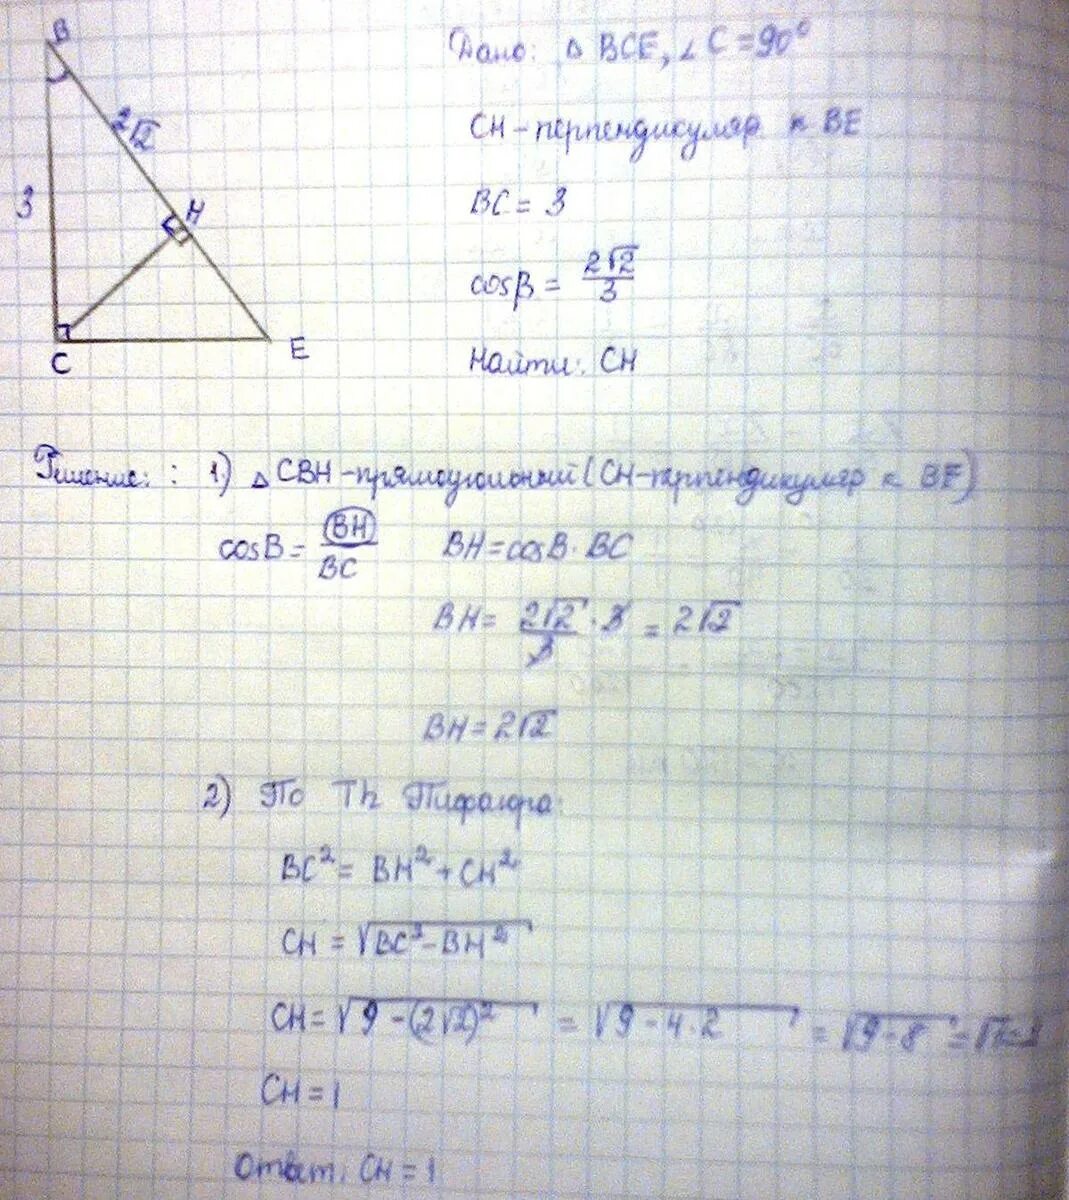 B
2√2
3
H
C
E
Дано: △ BCE, ∠C = 90°
CH – перпендикуляр к BE
BC = 3
cosβ = 2√2/3
Найти: CH
Решение: : 1) △ CBH – прямоугольный (CH – перпендикуляр к BE)
cosB = BH/BC BH = cosB · BC
BH = 2√2/3 · 3 = 2√2
BH = 2√2
2) По Th Пифагора:
BC² = BH² + CH²
CH = √BC² – BH²
CH = √9 – (2√2)² = √9 – 4·2 = √9 – 8 = √1 = 1
CH = 1
Ответ: CH = 1